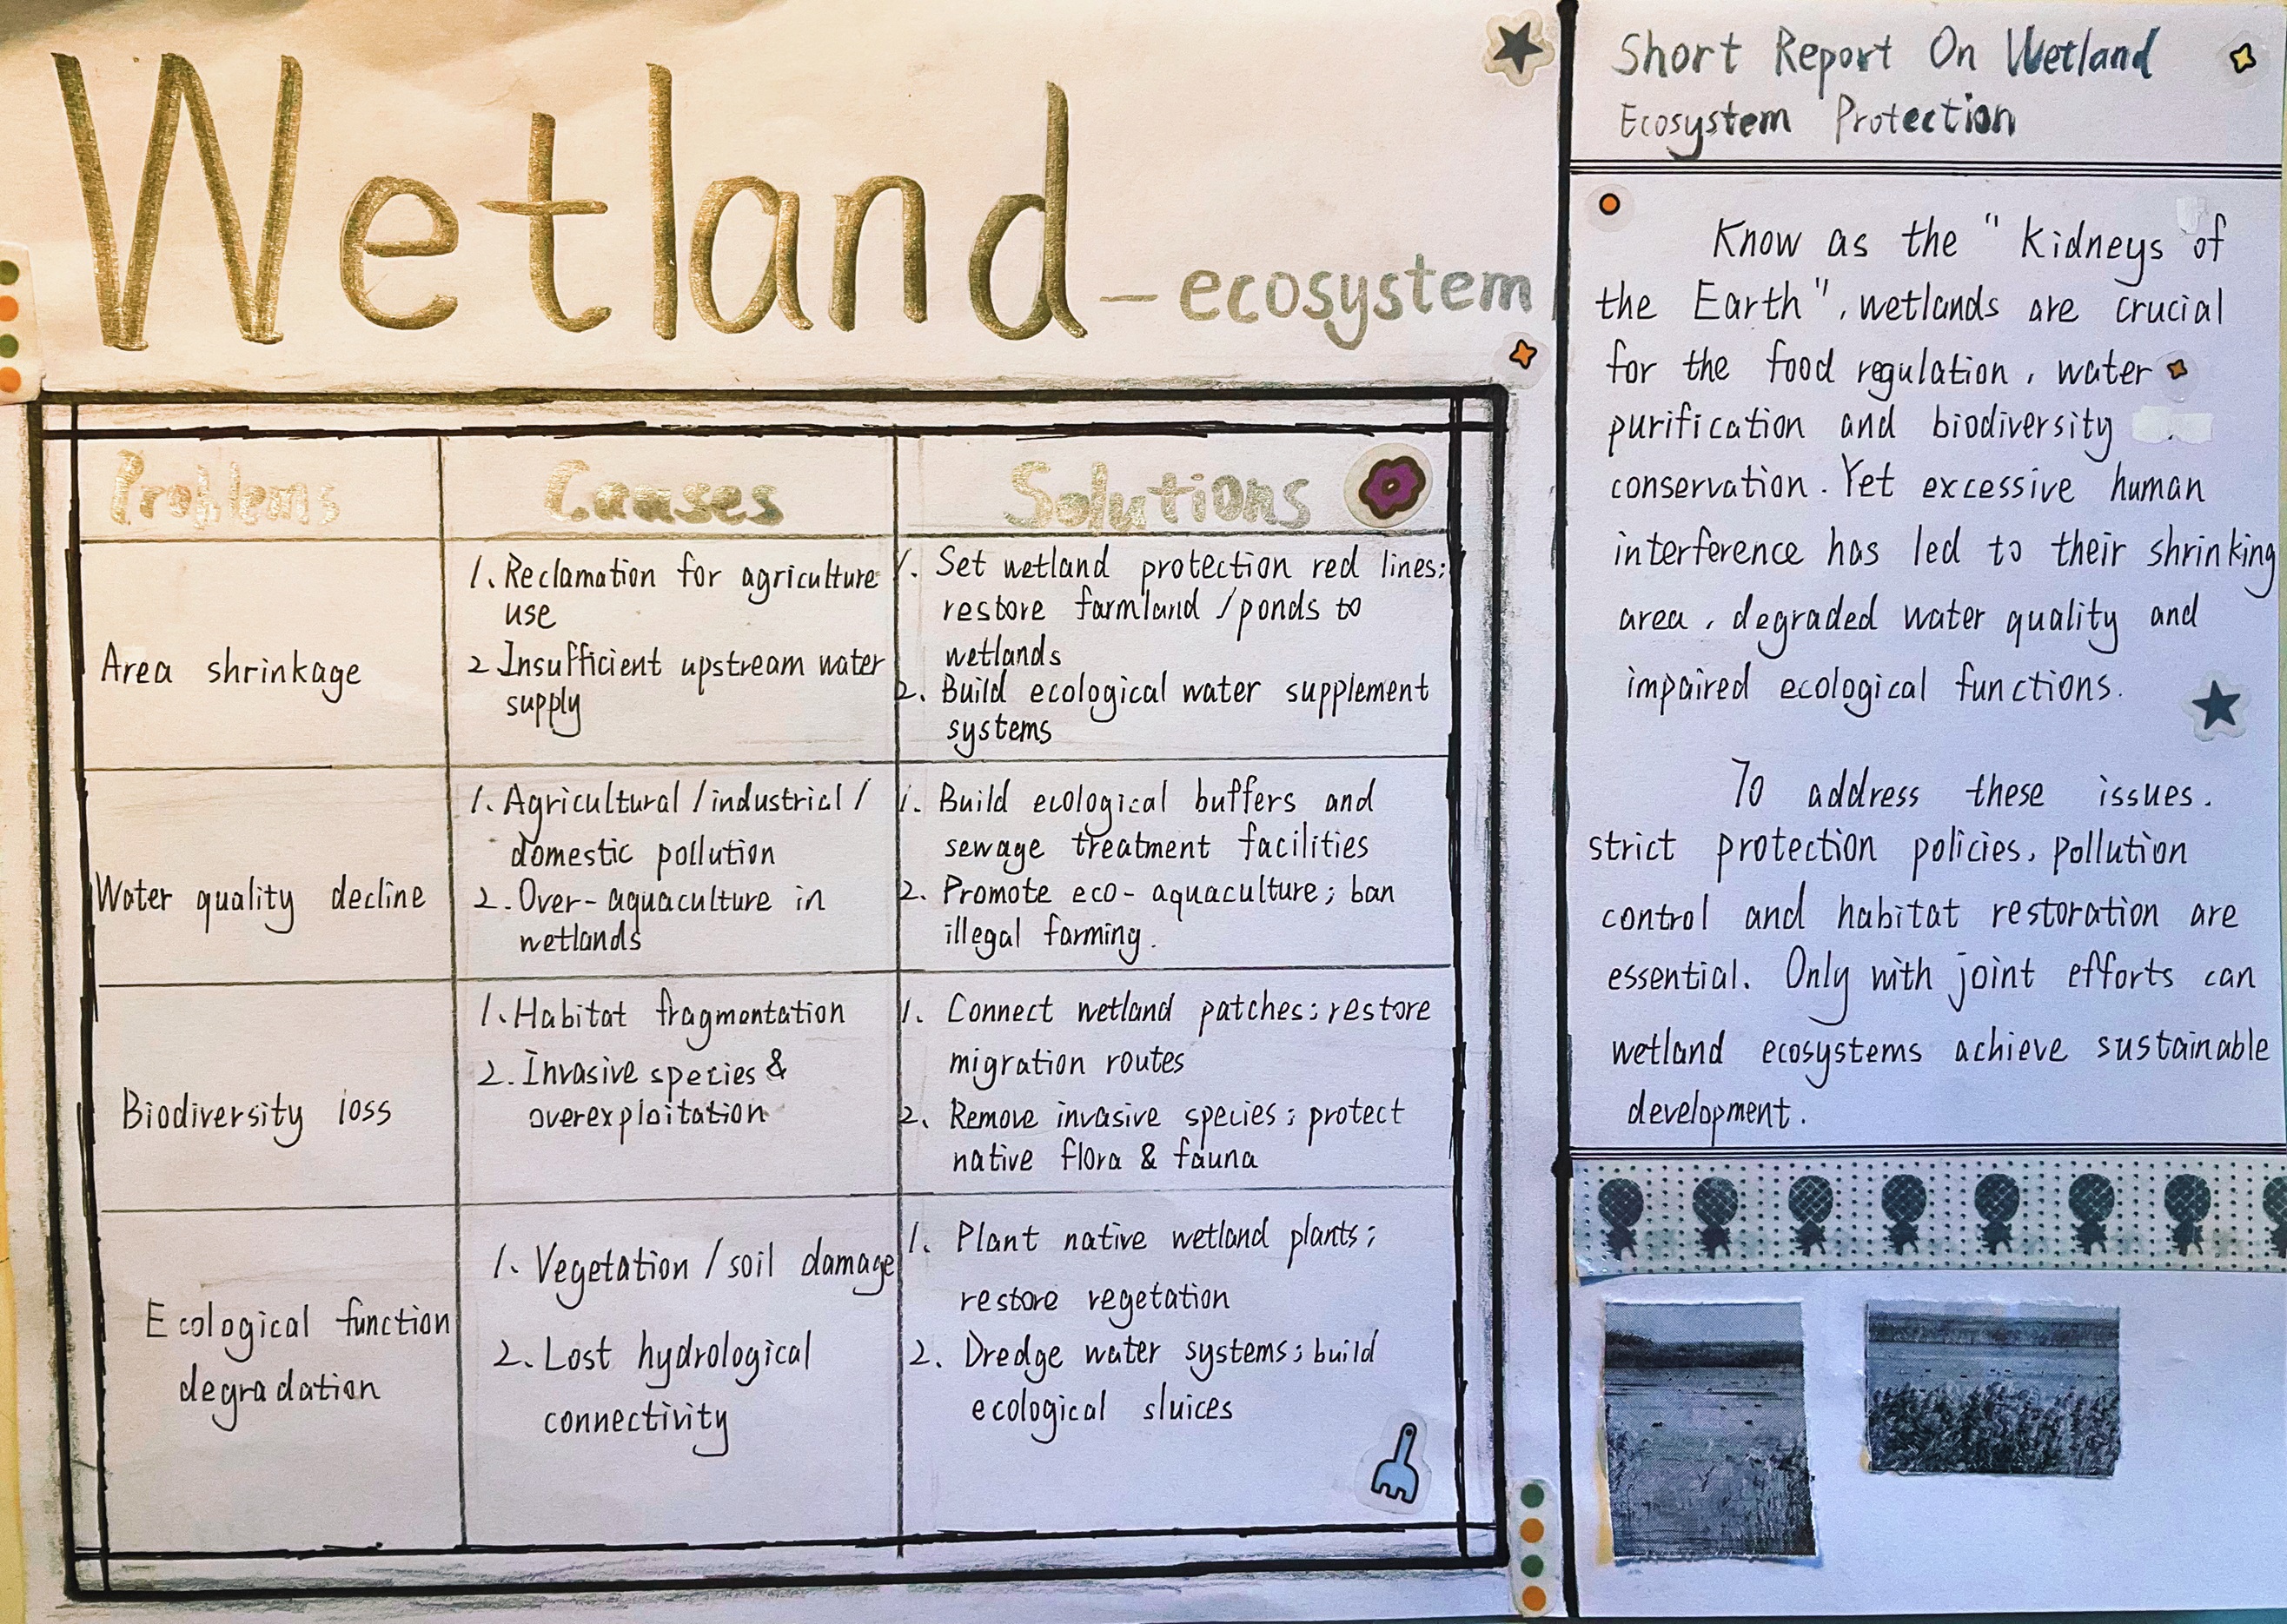 Wetland - ecosystem
Problems
Causes
Solutions
Area shrinkage
1. Reclamation for agriculture
use
2. Insufficient upstream water
supply
1. Set wetland protection red lines;
restore farmland / ponds to
wetlands
2. Build ecological water supplement
systems
Water quality decline
1. Agricultural / industrial /
domestic pollution
2. Over-aquaculture in
wetlands
1. Build ecological buffers and
sewage treatment facilities
2. Promote eco-aquaculture; ban
illegal farming.
Biodiversity loss
1. Habitat fragmentation
2. Invasive species &
overexploitation
1. Connect wetland patches; restore
migration routes
2. Remove invasive species; protect
native flora & fauna
Ecological function
degradation
1. Vegetation / soil damage
2. Lost hydrological
connectivity
1. Plant native wetland plants;
restore vegetation
2. Dredge water systems; build
ecological sluices
Short Report On Wetland
Ecosystem Protection
Know as the "kidneys of
the Earth", wetlands are crucial
for the food regulation, water
purification and biodiversity
conservation. Yet excessive human
interference has led to their shrinking
area, degraded water quality and
impaired ecological functions.
To address these issues.
strict protection policies, pollution
control and habitat restoration are
essential. Only with joint efforts can
wetland ecosystems achieve sustainable
development.